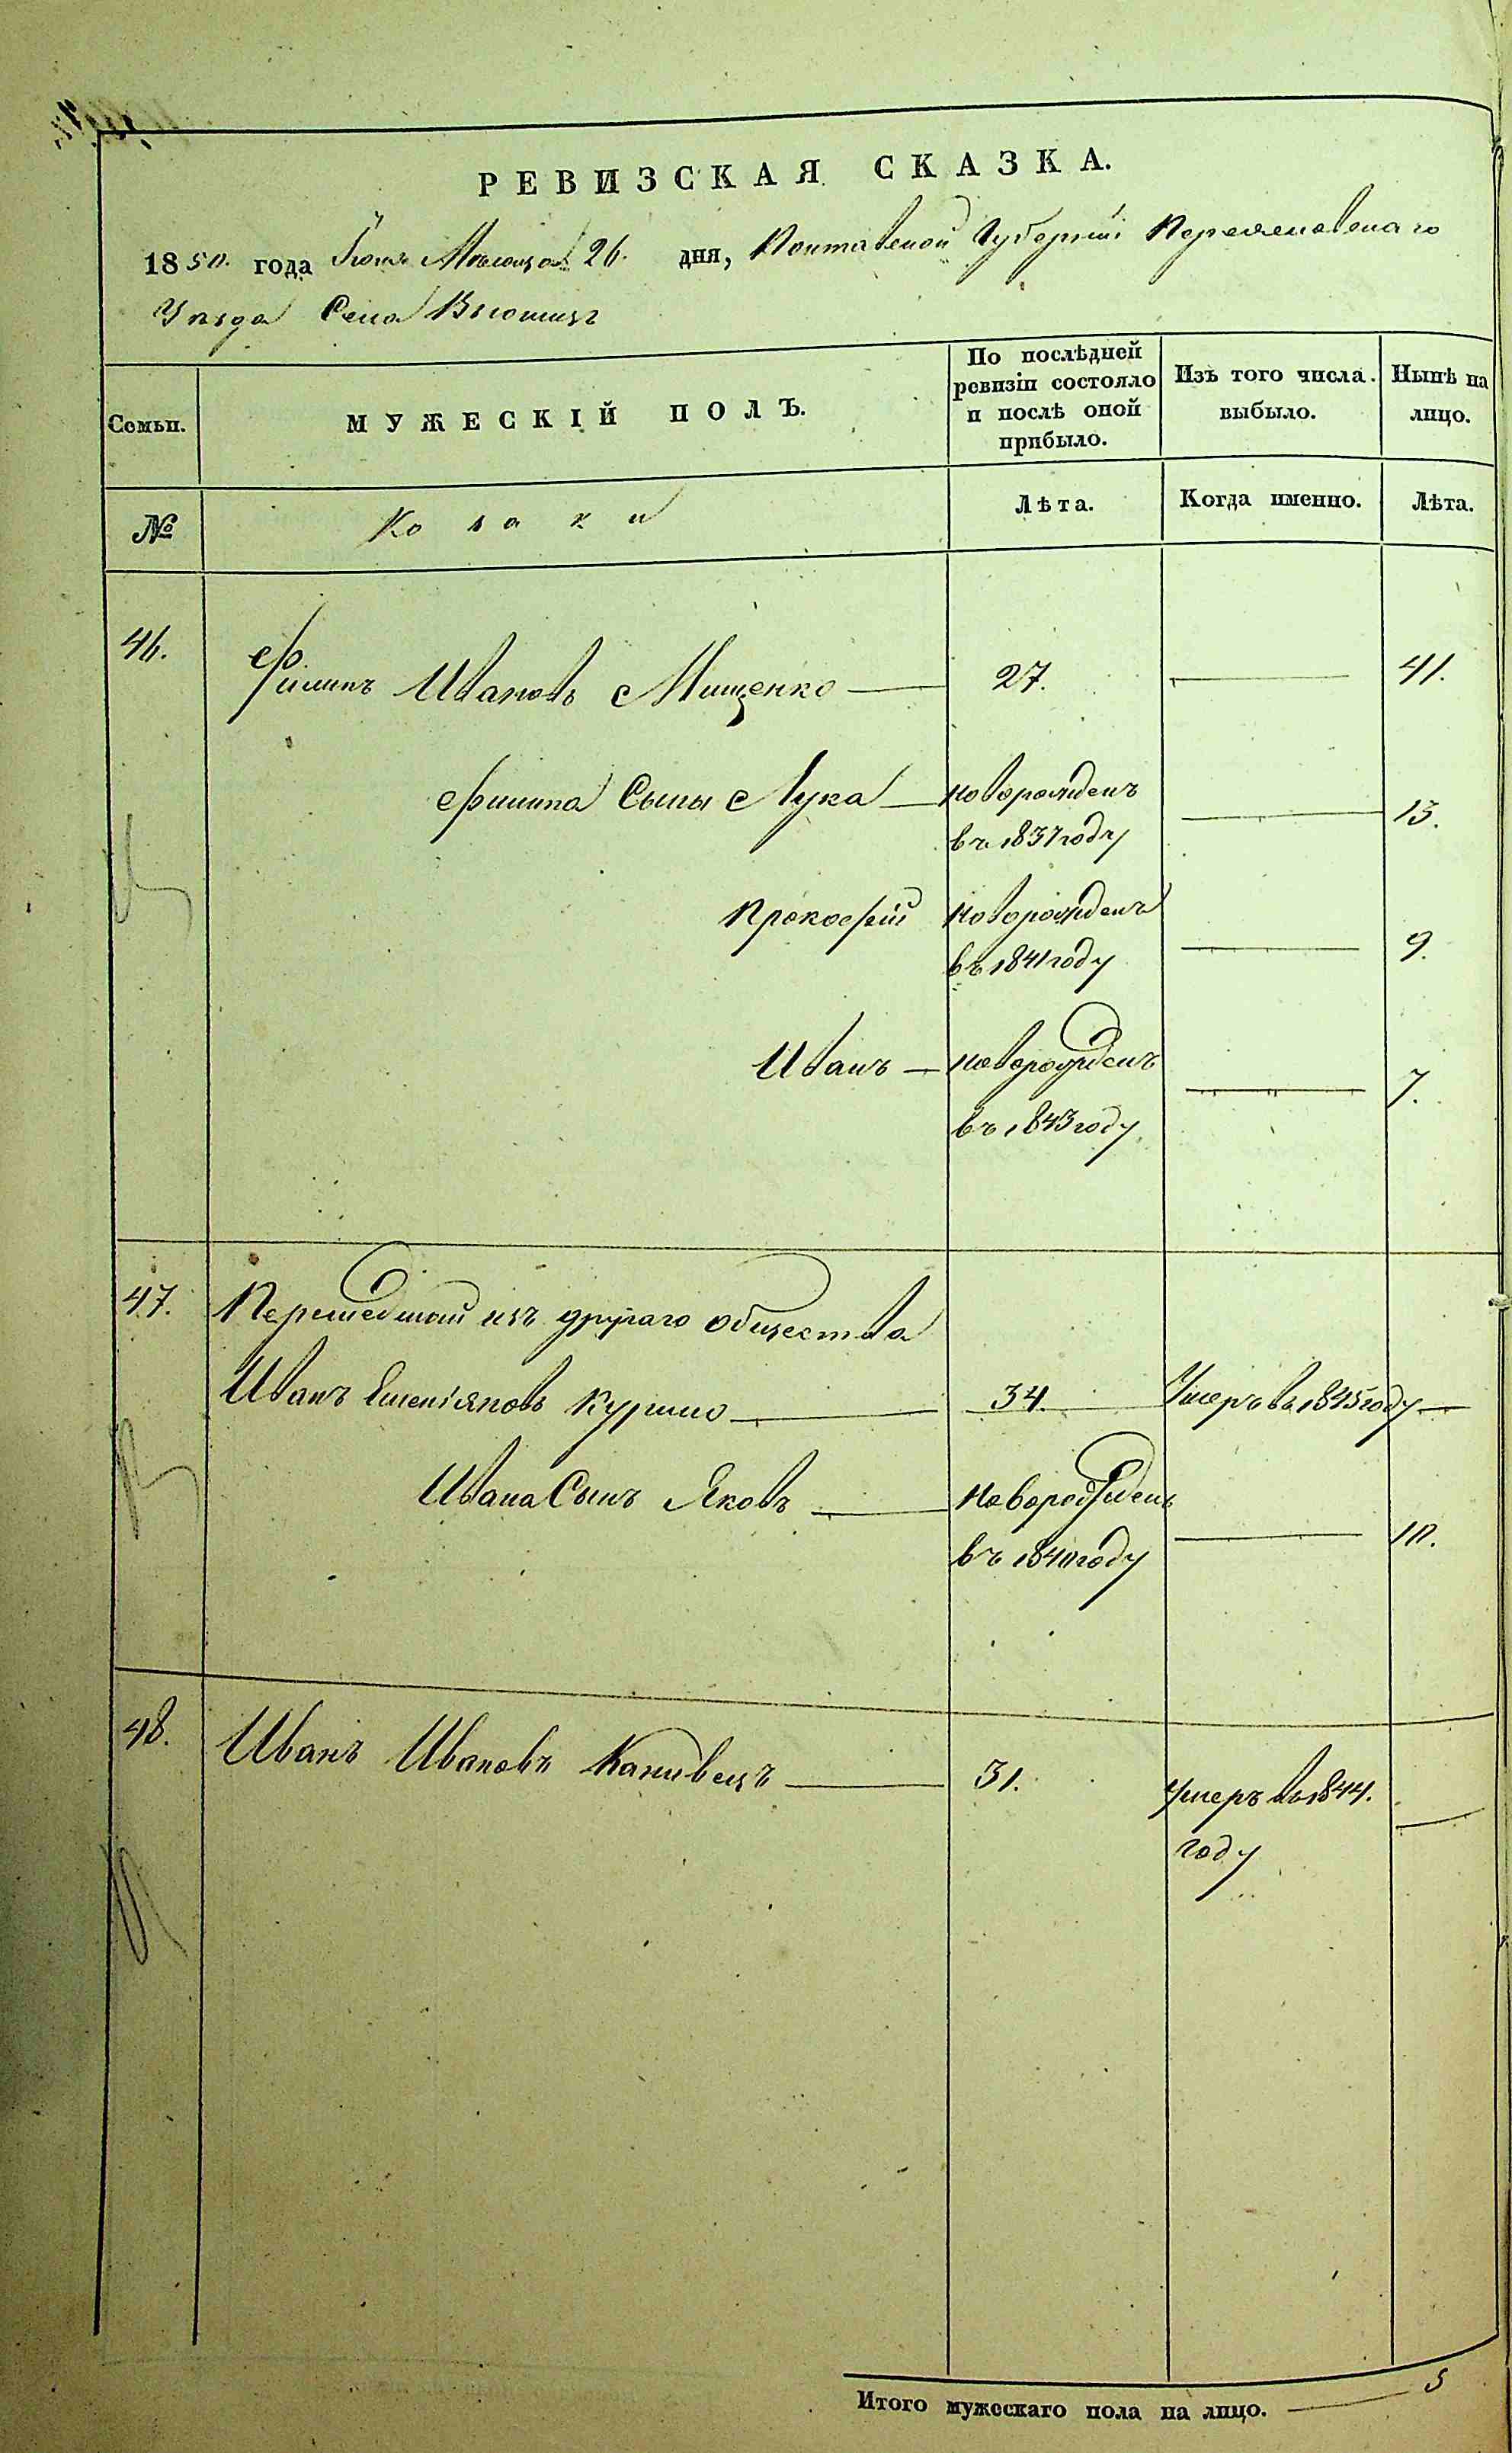 РЕВИЗСКАЯ СКАЗКА.
1850. года Іюня Мѣсяца 26. дня, Полтавской Губерніи Переяславскаго
Уѣзда Села Вьюнищъ
Семьи.
МУЖЕСКІЙ ПОЛЪ.
По послѣдней
ревизіи состояло
и послѣ оной
прибыло.
Изъ того числа
выбыло.
Нынѣ на
лицо.
№
Козаки
Лѣта.
Когда именно.
Лѣта.
46. Филипъ Ивановъ Мищенко — 27. — 41.
Филипа Сыны Лука — новорожденъ
въ 1837 году — 13.
Прокофій новорожденъ
въ 1841 году — 9.
Иванъ — новорожденъ
въ 1843 году — 7.
47. Перешедшій изъ другаго общества
Иванъ Емельяновъ Курило — 34. Умеръ въ 1845 году —
Ивана Сынъ Яковъ — новорожденъ
въ 1840 году — 10.
48. Иванъ Ивановъ Канивецъ — 31. умеръ въ 1844.
году —
Итого мужескаго пола на лицо. — 5